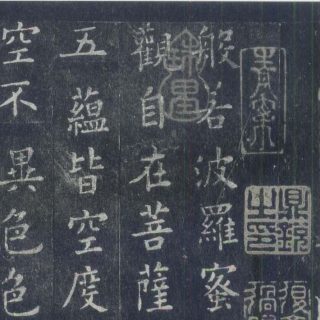 般若波羅蜜
觀自在菩薩
五蘊皆空度
空不異色色